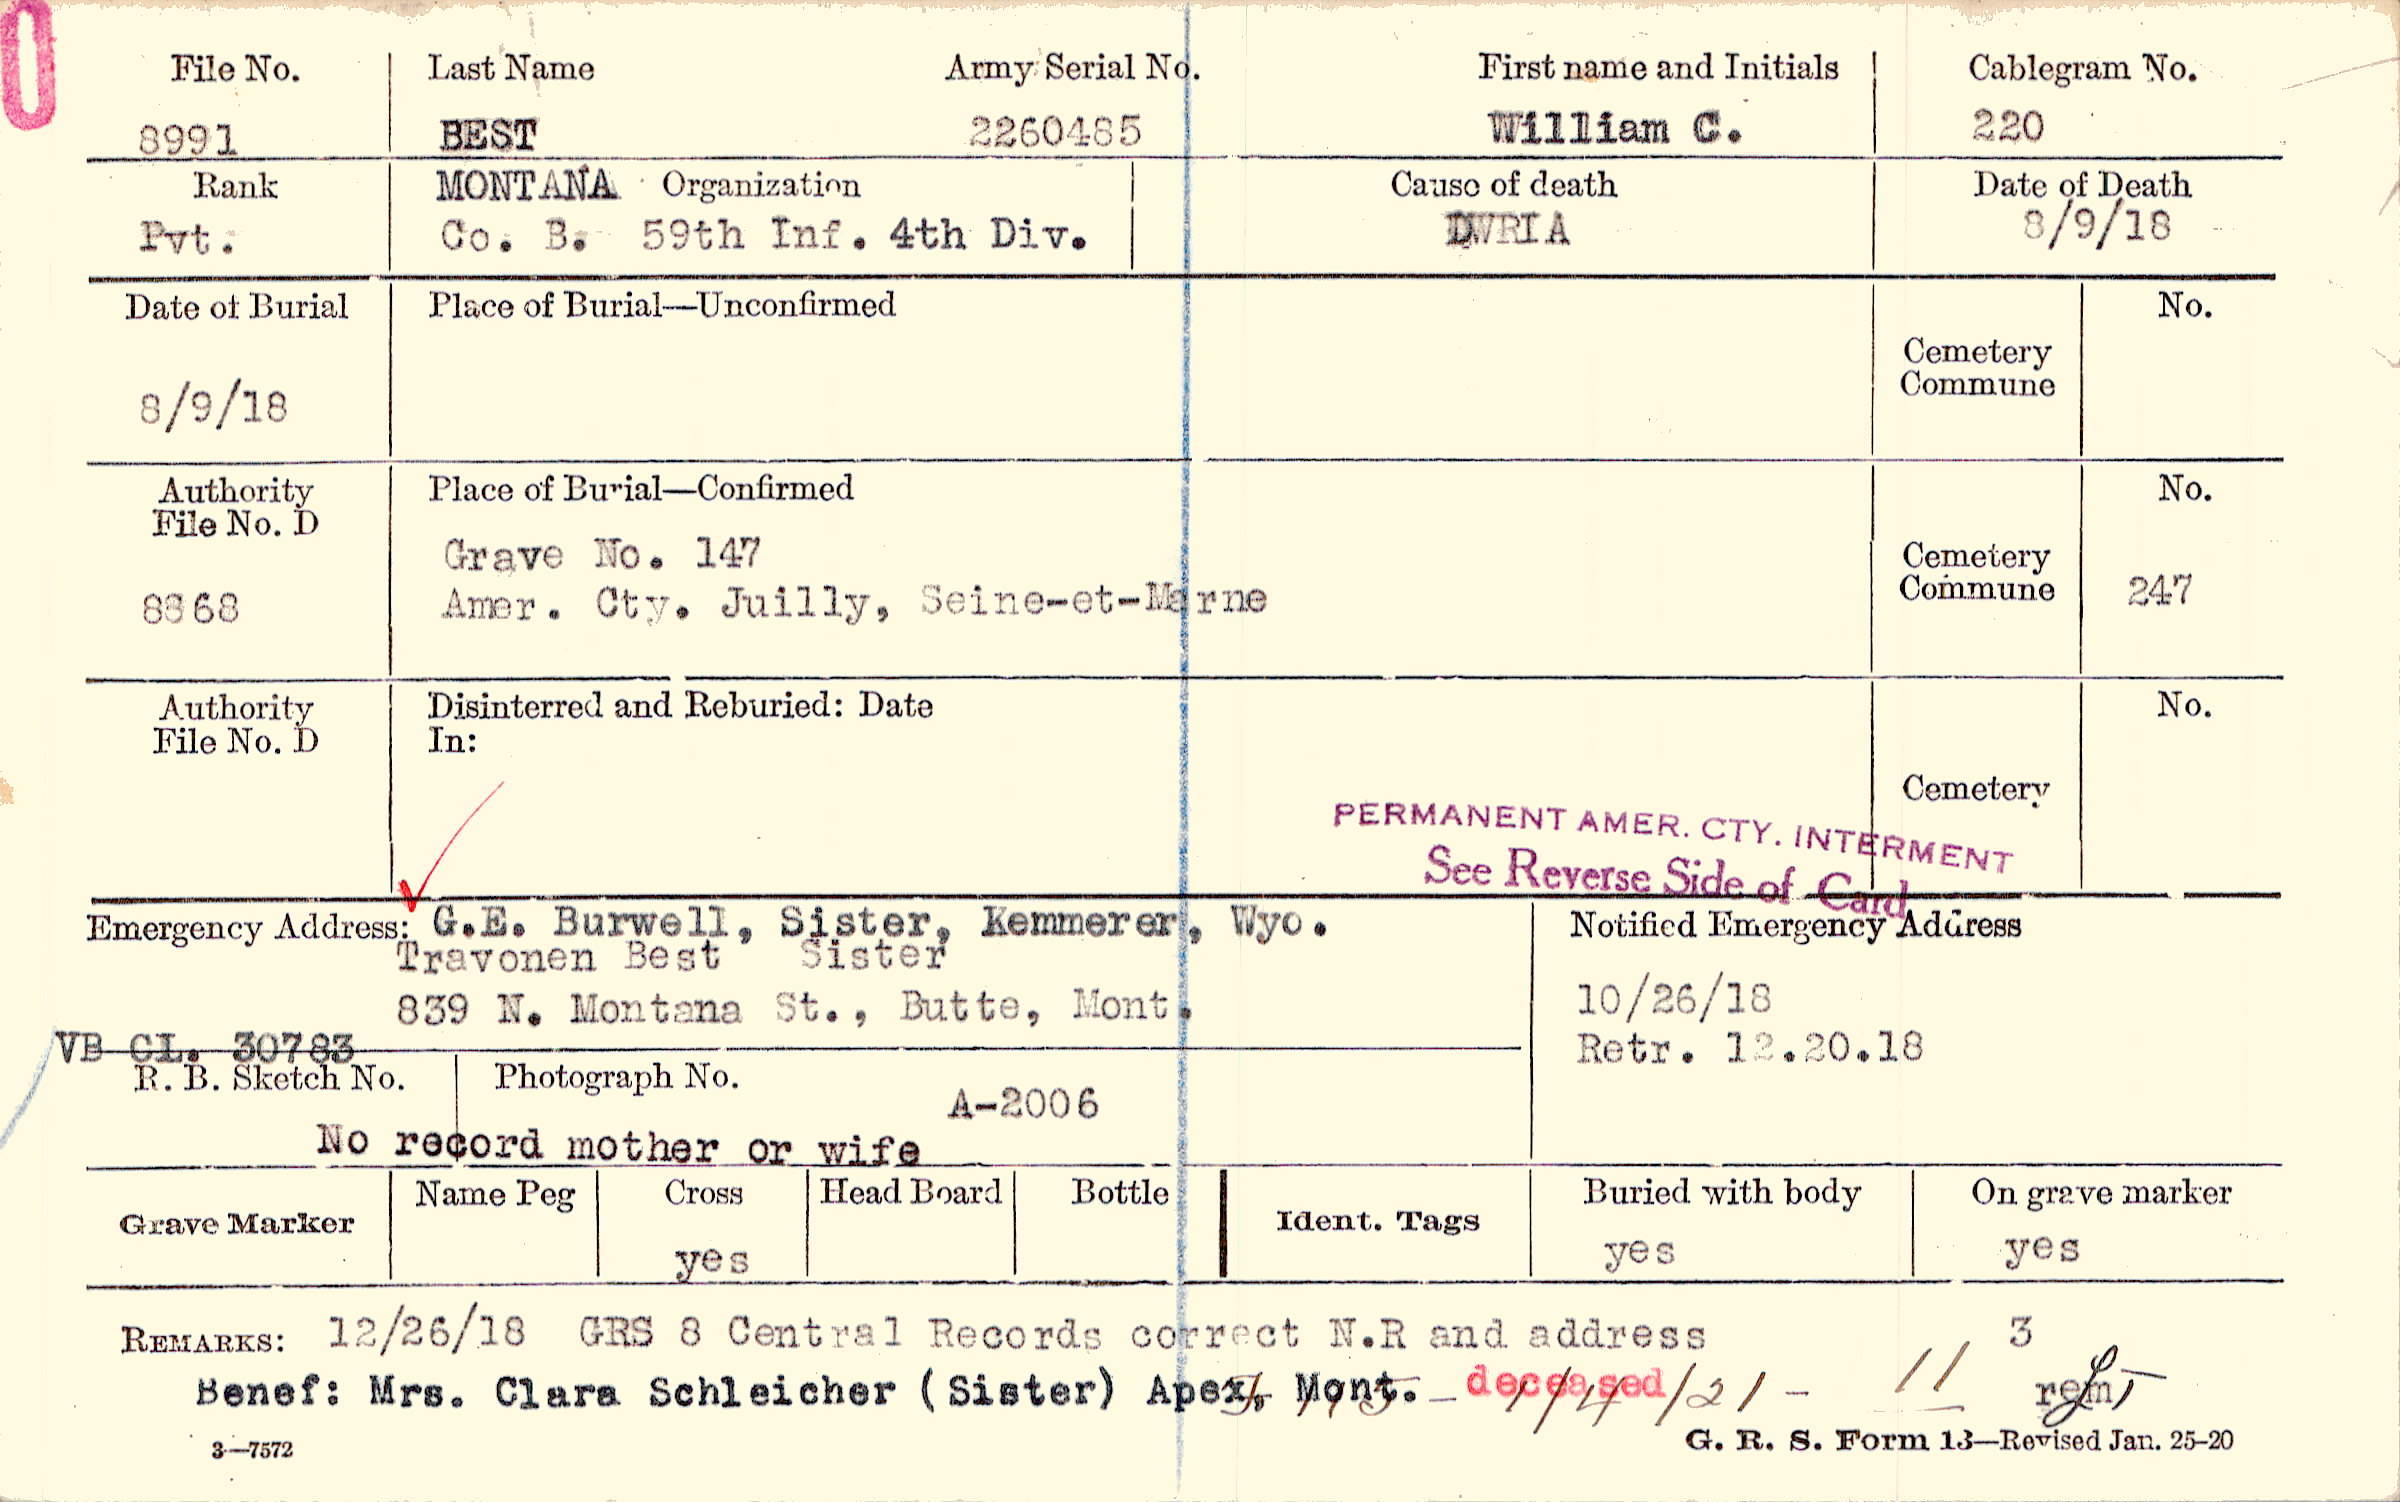 File No. Last Name Army Serial No. First name and Initials Cablegram No.
8991 BEST 2260485 William C. 220
Rank MONTANA Organization Cause of death Date of Death
Pvt. Co. B. 59th Inf. 4th Div. DWRIA 8/9/18
Date of Burial Place of Burial—Unconfirmed No.
Cemetery
Commune
8/9/18
Authority Place of Burial—Confirmed No.
File No. D
Grave No. 147 Cemetery
8868 Amer. Cty. Juilly, Seine-et-Marne Commune 247
Authority Disinterred and Reburied: Date No.
File No. D In:
Cemetery
PERMANENT AMER. CTY. INTERMENT
See Reverse Side of Card
Emergency Address: G.E. Burwell, Sister, Kemmerer, Wyo. Notified Emergency Address
Travonen Best Sister
839 N. Montana St., Butte, Mont. 10/26/18
VB CL. 30783 Retr. 12.20.18
R. B. Sketch No. Photograph No.
A-2006
No record mother or wife
Grave Marker Name Peg Cross Head Board Bottle Ident. Tags Buried with body On grave marker
yes yes yes
REMARKS: 12/26/18 GRS 8 Central Records correct N.R and address 3
Benef: Mrs. Clara Schleicher (Sister) Apex, Mont. deceased /21 - 11 rem
3—7572 G. R. S. Form 13—Revised Jan. 25-20